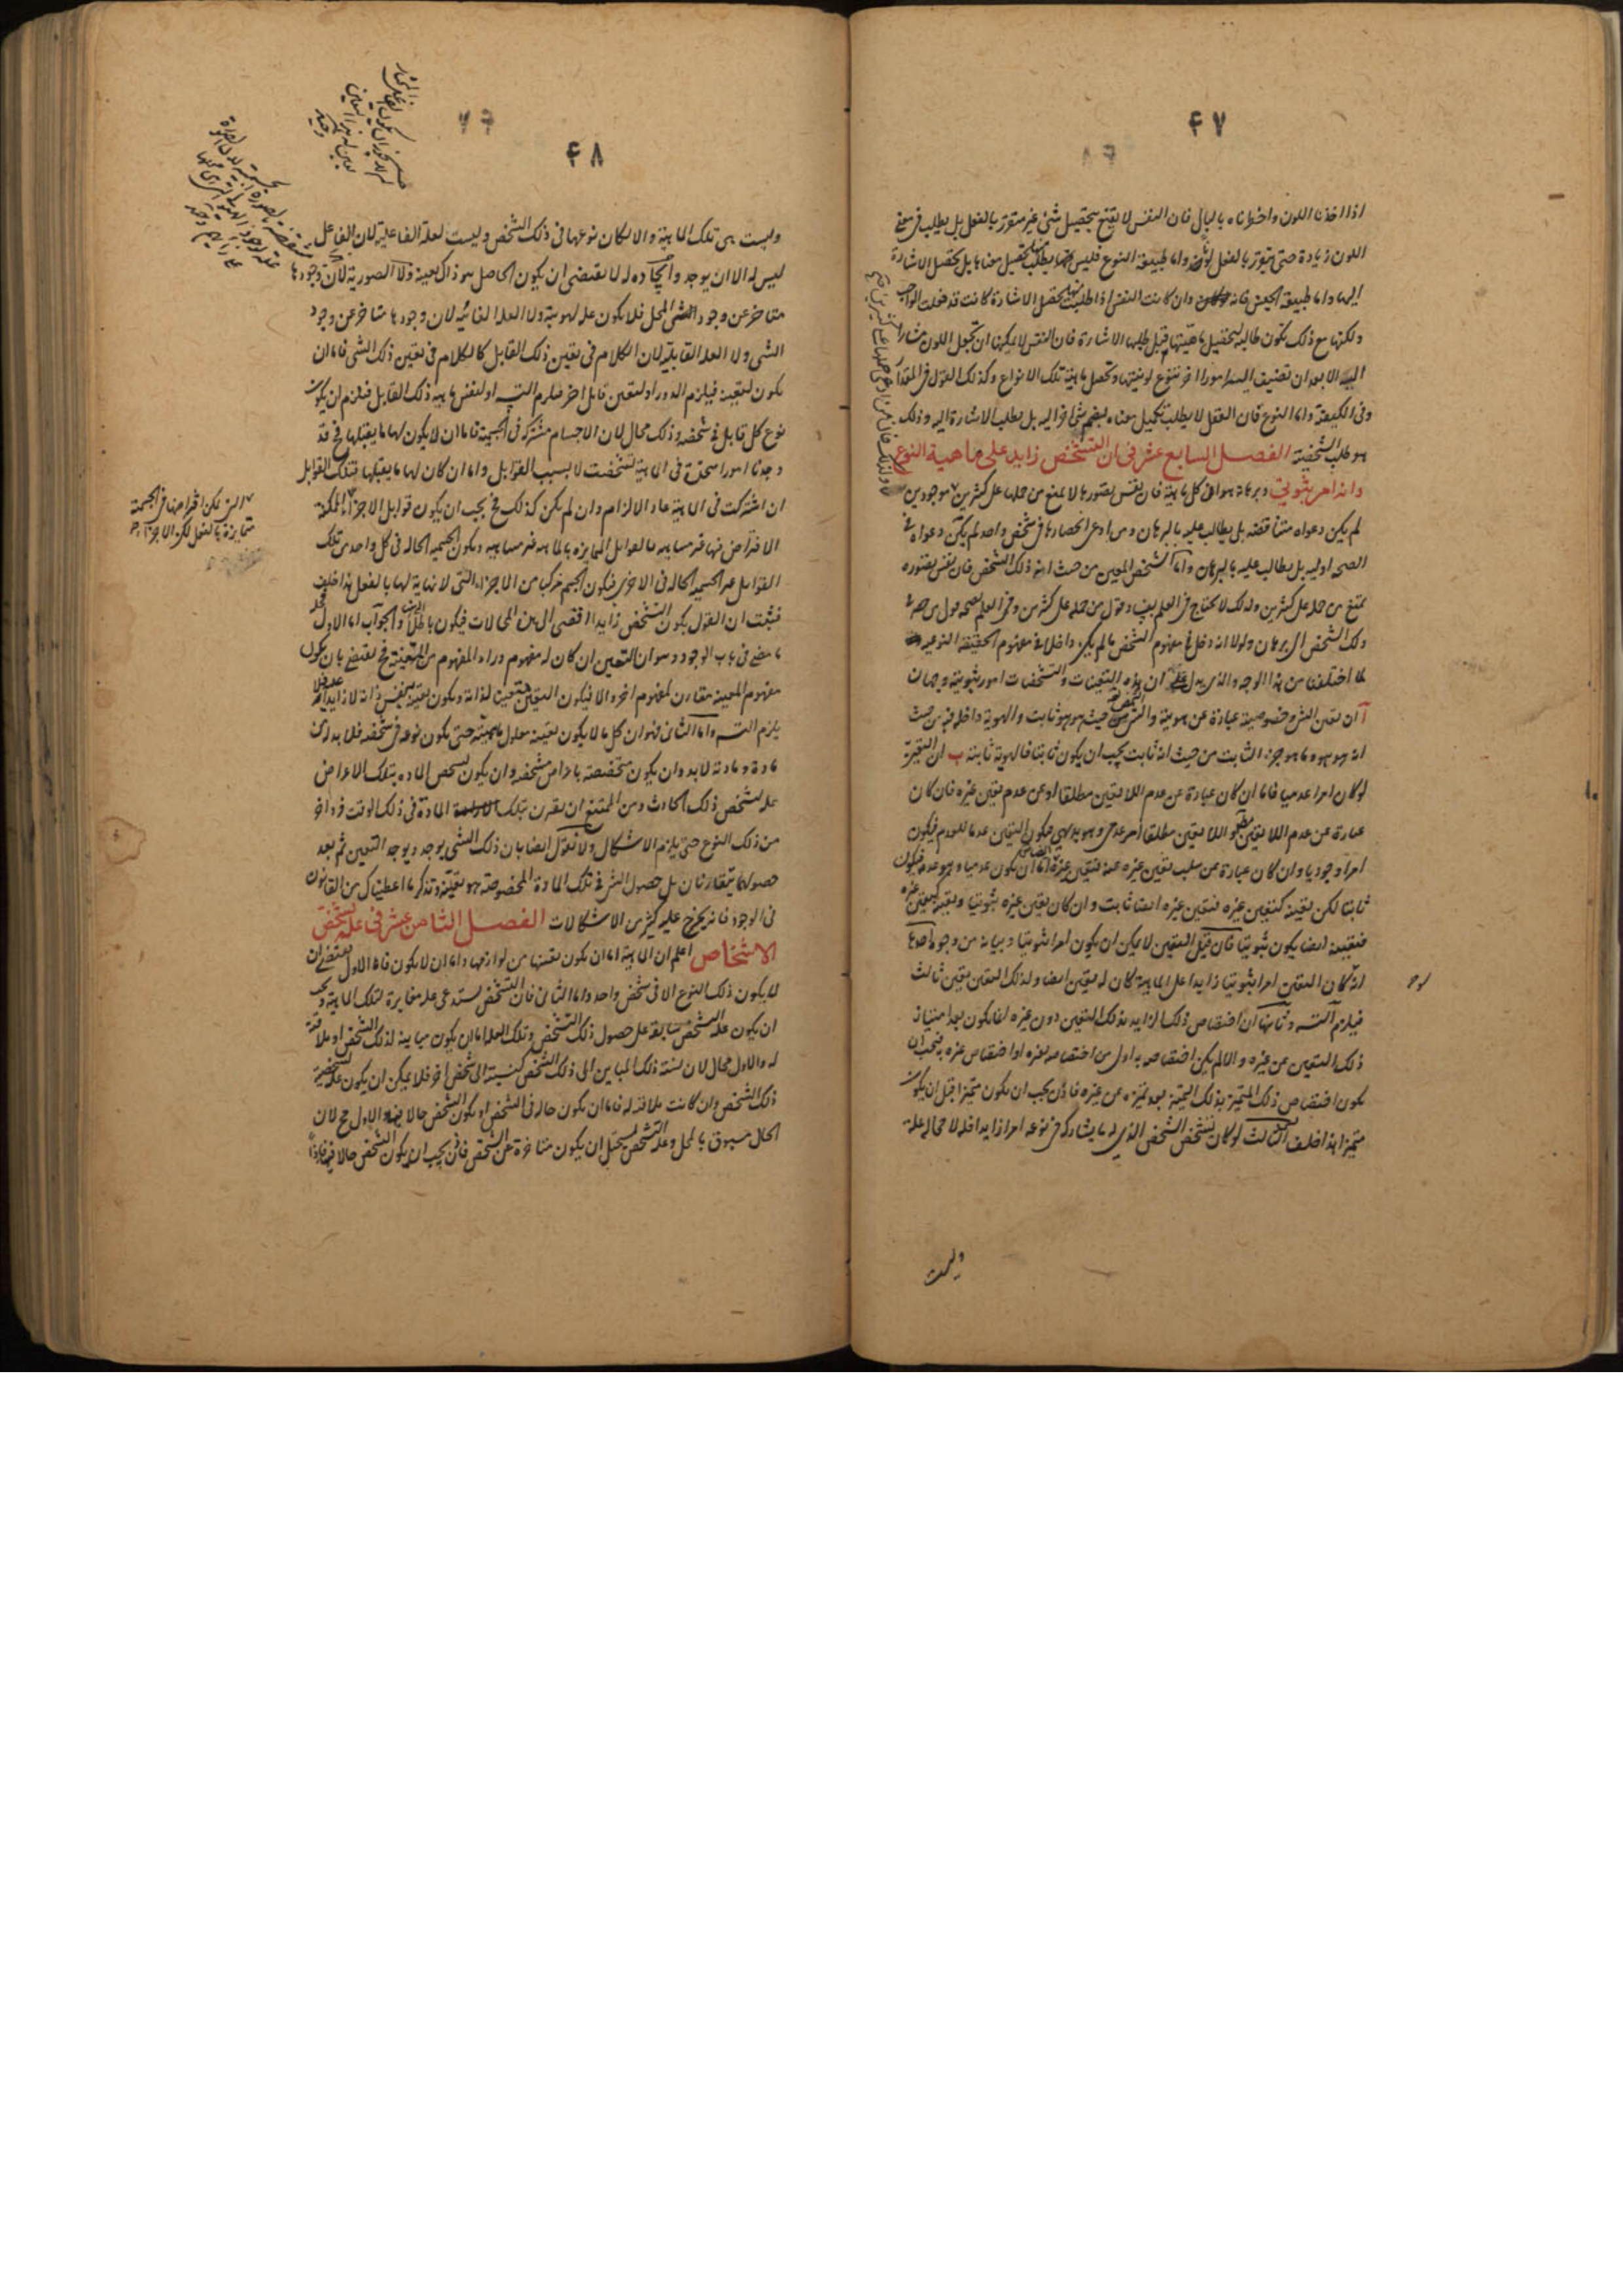 ۴۷
اذا اخذنا اللون واخطرناه بالبال فان النفس لا يقنع بتحصيل شئ غير متقرر بالفعل بل يطلب فى معنى
اللون زيادة حتى يتقرر بالفعل لون واما طبيعة النوع فليس يطلب تحصيل معناها بل تحصيل الاشارة
اليها واما طبيعة الجنس فانه وان كانت النفس اذا طلبت تحصيل الاشارة كانت قد فعلت الواجب
ولكنها مع ذلك تكون طالبة لتحصيل ماهيتها قبل طلبها الاشارة فان النفس لا يمكنها ان تجعل اللون مشارا
اليه الا بعد ان تضيف اليه امورا اخر تنوع لونيتها وتحصل ماهية تلك الانواع وكذلك القول فى المقدار
وفى الكيفية واما النوع فان العقل لا يطلب تكميل معناه بضم شئ اخر اليه بل يطلب الاشارة اليه وذلك
هو طلب الشخصية الفصل السابع عشر فى ان التشخص زايد على ماهية النوع
وانه امر ثبوتى وبرهانه هو ان كل ماهية فان نفس تصورها لا يمنع من حملها على كثيرين موجودين
لم يكن دعواه متناقضة بل يطالب عليه بالبرهان ومن ادعى انحصارها فى شخص واحد لم يكن دعواه فى
الصحة اولية بل يطالب عليه بالبرهان واما الشخص المعين من حيث انه ذلك الشخص فان نفس تصوره
يمتنع من حمله على كثيرين ولذلك لا يحتاج فى العلم
ذلك الشخص الى برهان ولولا انه دخل فى مفهوم الشخص ما لم يكن داخلا فى مفهوم الحقيقة النوعية
لما اختلفا من هذا الوجه والذى يدل على ان هذه التعينات والتشخصات امور ثبوتية وجهان
آ ان تعين الشئ وخصوصيته عبارة عن هويته والشئ من حيث هو هو ثابت والهوية داخلة فيه من حيث
انه هو هو وما هو جزء الثابت من حيث انه ثابت يجب ان يكون ثابتا فالهوية ثابتة ب ان التعين
لو كان امرا عدميا فاما ان كان عبارة عن عدم اللا تعين مطلقا او عن عدم تعين غيره فان كان
عبارة عن عدم اللا تعين مطلقا واللا تعين مطلقا امر عدمى وهو بديهى فيكون التعين عدما للعدم فيكون
امرا وجوديا وان كان عبارة عن سلب تعين غيره عنه فتعين غيره اما ان يكون عدميا وهو عدمه فيكون
ثابتا لكن تعينه كتعين غيره فتعين غيره ايضا ثابت وان كان تعين غيره ثبوتيا وتعينه كتعين غيره
فتعينه ايضا يكون ثبوتيا فان قيل التعين لا يمكن ان يكون امرا ثبوتيا وبيانه من وجوه احدها
انه لو كان التعين امرا ثبوتيا زايدا على الماهية كان له تعين ايضا ولذلك التعين تعين ثالث
فيلزم التسـ وثانيها ان اختصاص ذلك الزايد بذلك التعين دون غيره انما يكون بعد امتياز
ذلك التعين عن غيره والا لم يكن اختصاصه به اولى من اختصاصه بغيره او اختصاص غيره به فيجب ان
يكون اختصاص ذلك المتميز بذلك التميز بعد تميزه عن غيره فاذن يجب ان يكون متميزا قبل ان يكون
متميزا هذا خلف الثالث لو كان تشخص الشخص الذى له ما يشاركه فى نوعه امرا زايدا فله لا محالة علة
وليست
۴۸
وليست هى تلك الماهية والا لكان نوعها فى ذلك الشخص وليست لعلة الفاعلية لان الفاعل
ليس له الا ان يوجد وايجاده له لا يقتضى ان يكون الحاصل هو ذاك بعينه ولا الصورية لان وجودها
متاخر عن وجود المحل فلا يكون علة لهويته ولا العلة الغائية لان وجودها متاخر عن وجود
الشى ولا العلة القابلية لان الكلام فى تعين ذلك القابل كالكلام فى تعين ذلك الشى فاما ان
يكون لتعينه فيلزم الدور او لتعين قابل اخر فيلزم التسـ او لنفس ماهية ذلك القابل فيلزم ان يكون
نوع كل قابل فى شخصه وذلك محال لان الاجسام مشتركة فى الجسمية فاما ان لا يكون لها ما يقبلها فح قد
وجدنا امورا متحدة فى الماهية تشخصت لا بسبب القوابل واما ان كان لها ما يقبلها فتلك القوابل
ان اشتركت فى الماهية عاد الالزام وان لم يكن كذلك فح يجب ان يكون قوابل الاجزاء الممكنة
الافتراض فيها غير متناهية فالقوابل المتمايزة بالماهية غير متناهية ويكون الجسمية الحالة فى كل واحد من تلك
القوابل غير الجسمية الحالة فى الاخرى فيكون الجسم مركبا من الاجزاء التى لا نهاية لها بالفعل هذا خلف
فثبت ان القول بكون التشخص زايدا افضى الى هذه المحالات فيكون باطلا والجواب اما الاول
ما مضى فى باب الوجود وهو ان التعين ان كان له مفهوم وراء المفهوم من المتعينة فح يقتضى بان يكون
مفهوم المعينه مقارن لمفهوم اخر والا فيكون التعين متعينا لذاته ويكون تعينه نفس ذاته لا زايدا عليه فلا
يلزم التسـ واما الثانى فهو ان كل ما لا يكون تعينه معلول ماهيته حتى يكون نوعه فى شخصه فلا بد له من
مادة ومادته لا بد وان يكون متخصصة باعراض مشخصة وان يكون تشخص المادة بتلك الاعراض
علة لتشخص ذلك الحادث ومن الممتنع ان يقترن بتلك المادة فى ذلك الوقت فرد اخر
من ذلك النوع حتى يلزم الاشكال ولا نقول ايضا بان ذلك الشى يوجد ويوجد التعين ثم بعد
حصولهما يتقارنان بل حصول الشئ فى تلك المادة المخصوصة هو تعينه وتذكر ما اعطيناك من القانون
فى الوجود فانه يخرج عليه كثير من الاشكالات الفصل الثامن عشر فى علة تشخص
الاشخاص اعلم ان الماهية اما ان يكون تعينها من لوازمها واما ان لا يكون فاما الاول يقتضى ان
لا يكون ذلك النوع الا فى شخص واحد واما الثانى فان التشخص يستدعى علة مغايرة لتلك الماهية ويجب
ان يكون علة التشخص سابقة على حصول ذلك التشخص وتلك العلة اما ان يكون مباينة لذلك الشخص او ملاقية
له والاول محال لان نسبة ذلك المباين الى ذلك الشخص كنسبته الى شخص اخر فلا يمكن ان يكون علة لتشخص
ذلك الشخص وان كانت ملاقية له فاما ان يكون حالة فى الشخص او يكون الشخص حالا فيها والاول مح لان
الحال مسبوق بالمحل وعلة التشخص يستحيل ان يكون متاخرة عن الشخص فاذن يجب ان يكون الشخص حالا فيه